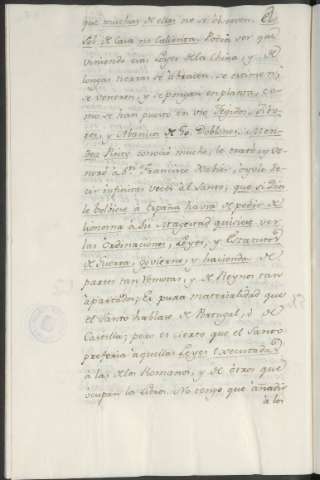 que muchas de ellas no se observen. El
Sol de Casa no calienta. Podia ser que
viniendo eſas Leyes de la China, y de
longas tierras se abracen, se estimen,
se veneren, y se pongan en planta, co-
mo se han puesto en uso Tejidos,
y Abanicos de 60. Doblones. Men-
dez Pinto conoció mucho, le trató y ve-
neró à Sn. Francisco Xavier, oyole de-
cir infinitas veces al Santo, que si Dios
le bolviese à España havia de pedir de
limosna à Su Magestad quisiese ver
las Ordinaciones, Leyes, y Estatutos
de Guerra, Govierno, y hacienda de
partes tan remotas, y de Reynos tan
apartados. Es pura materialidad que
el Santo hablase de Portugal, ò de
Castilla; pero es cierto que el Santo
preferia aquellas Leyes executadas
à las de los Romanos, y de otros que
ocupan los libros. No tengo que añadir
à los